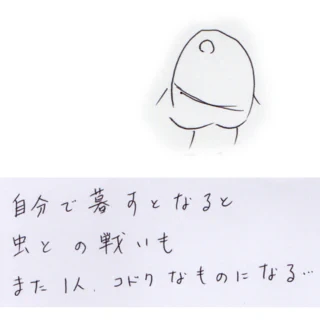 自分で暮すとなると
虫との戦いも
また1人、コドクなものになる…